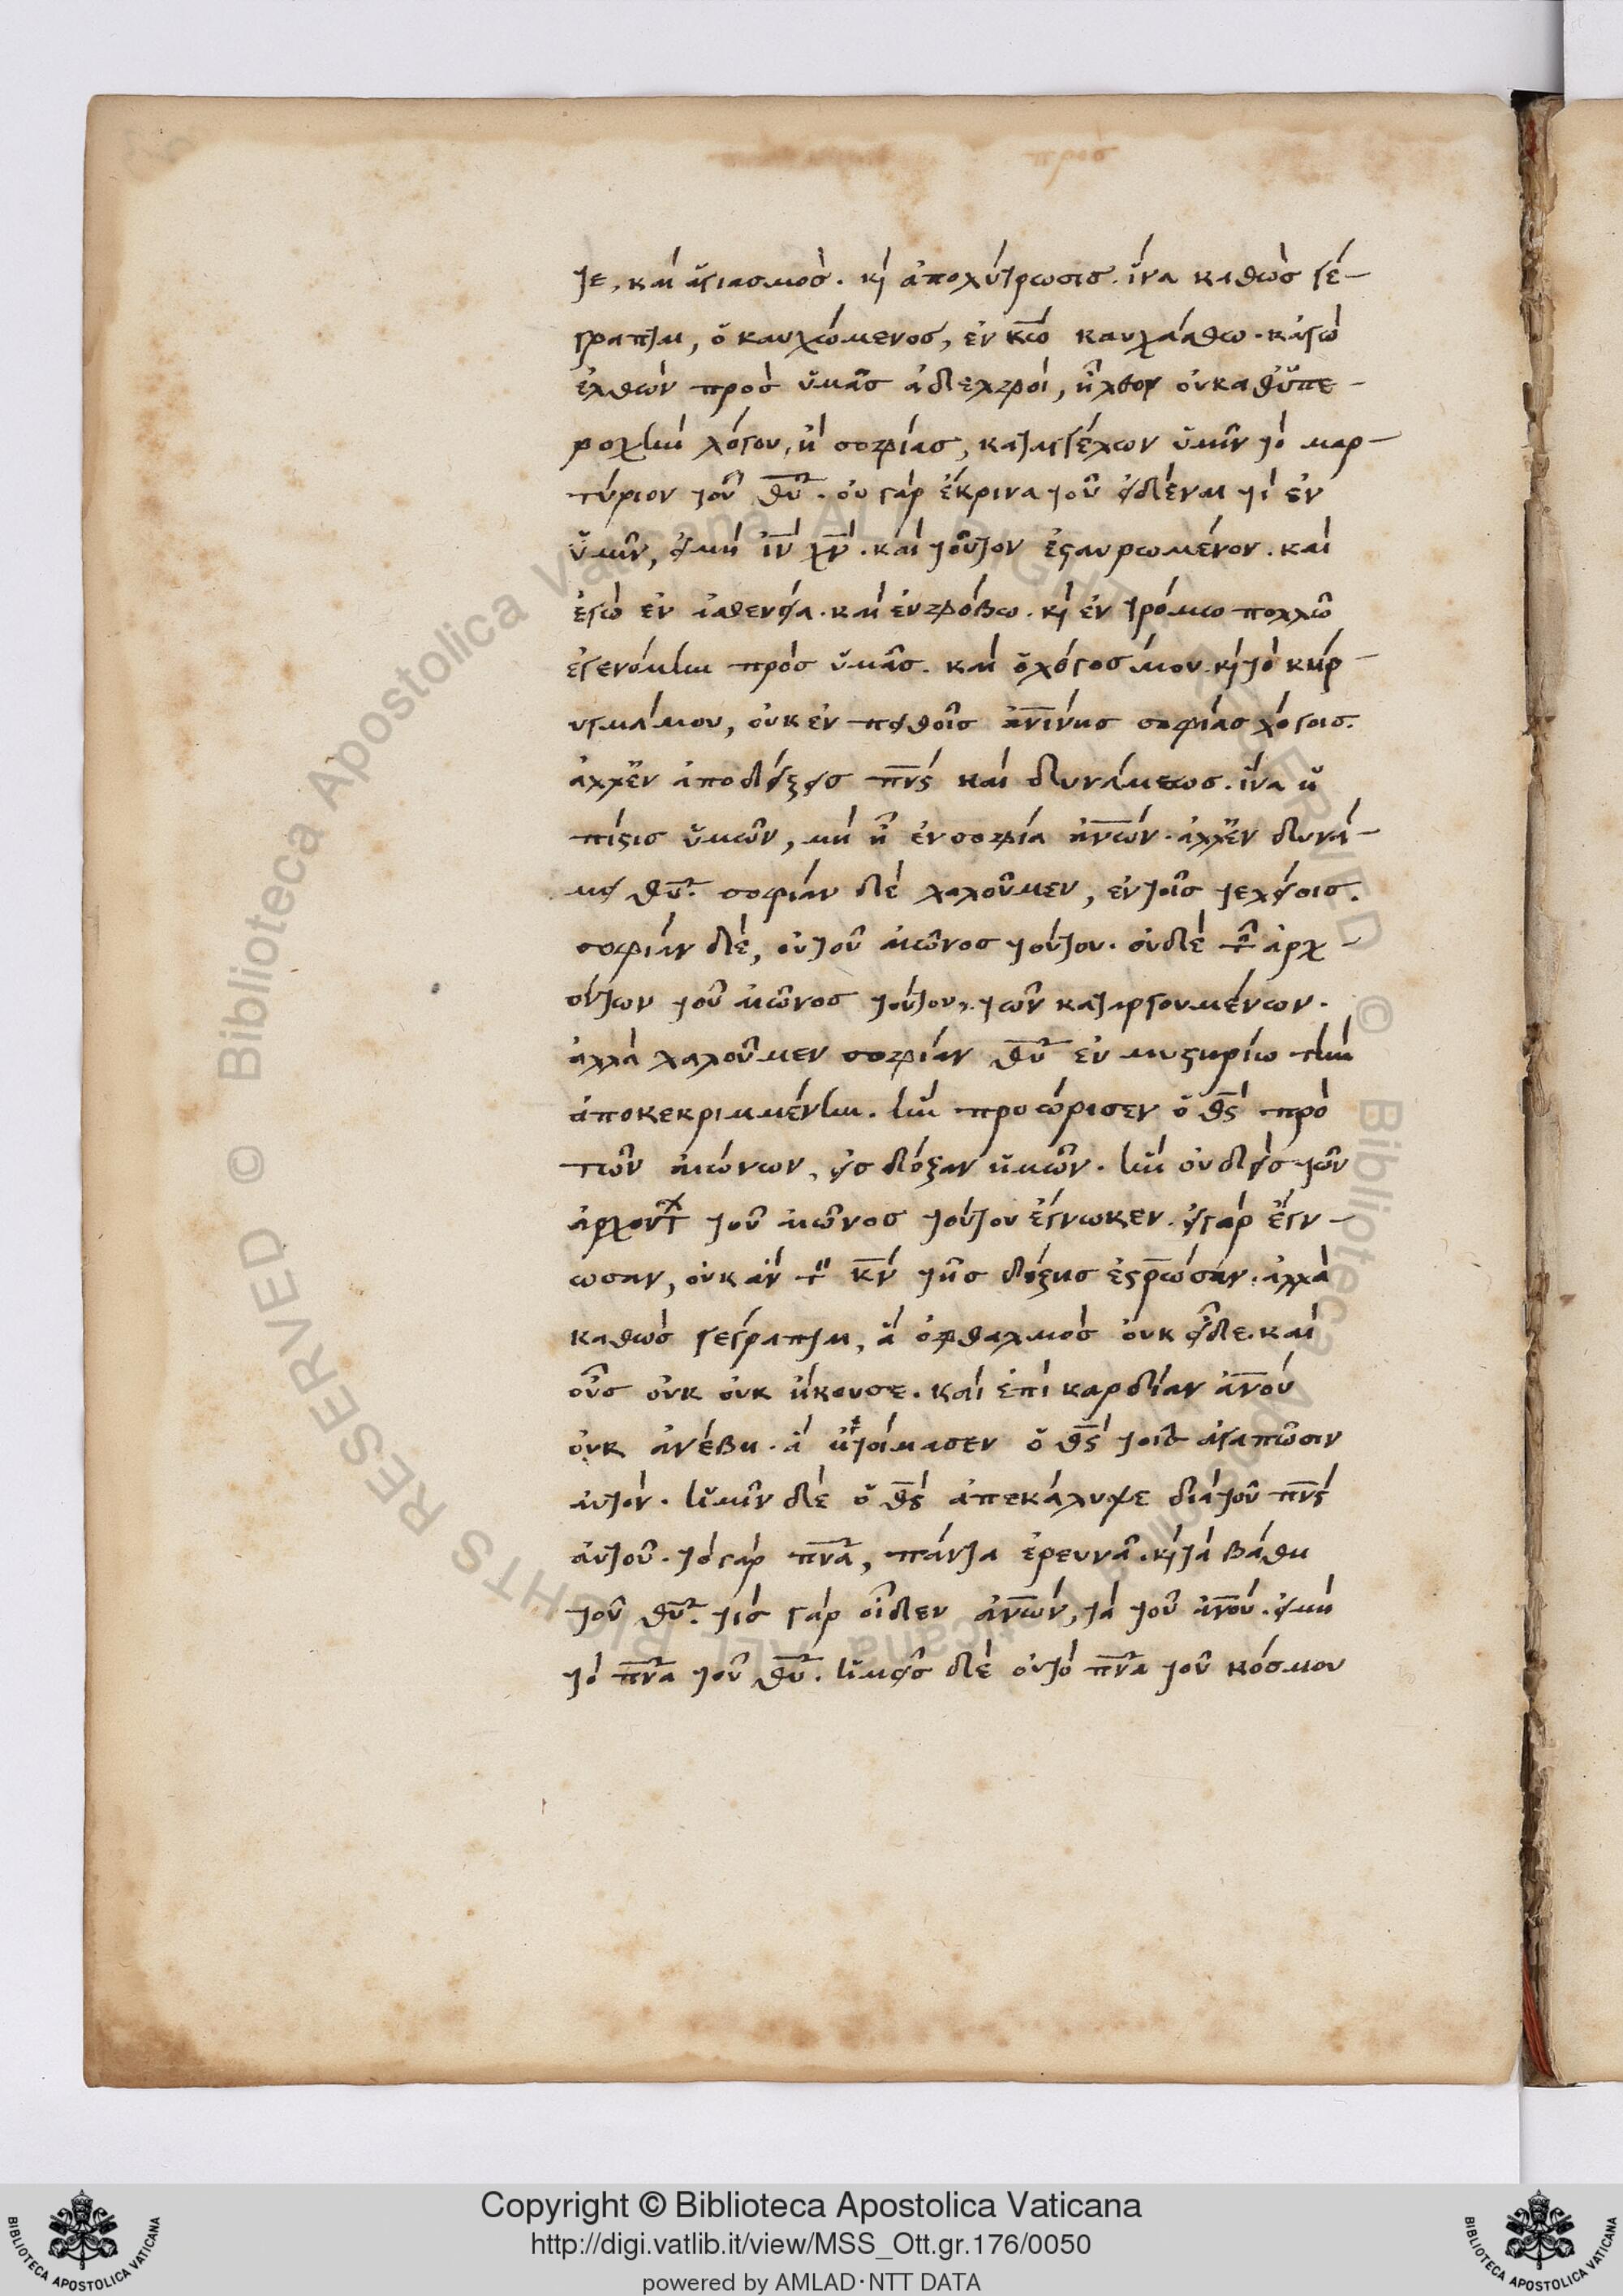 τε, καὶ ἁγιασμὸς. κ̀ ἀπολύτρωσισ. ἵνα καθὼς γέ-
γραπται, ὁ καυχώμενος, ἐν κ̅ω̅ καυχάσθω. κἀγὼ
ἐλθὼν πρὸς ὑμᾶς ἀδελφοὶ, ἦλθον οὐκαθ᾽ὑπε-
ροχὴν λόγου, ἢ σοφίας, καταγγέλων ὑμῖν τὸ μαρ-
τύριον τοῦ θ̅υ̅. οὐ γὰρ ἔκρινα τοῦ εἰδέναι τὶ ἐν
ὑμῖν, εἰμὴ ι̅ν̅ χ̅ν̅. καὶ τοῦτον ἐσταυρωμένον. καὶ
ἐγὼ ἐν ἀσθενεία. καὶ ἐνφόβω. κ̀ ἐν τρόμω πολλῶ
ἐγενόμην πρὸς ὑμᾶς. καὶ ὁλόγοσ μου. κ̀ τὸ κήρ-
υγμάμου, οὐκ ἐν πειθοῖς ἀ̅ν̅ίνης σοφίας λόγοις.
ἀλλ᾽ἐν ἀποδείξεισ π̅ν̅ς̅ καὶ δυνάμεως. ἵνα ἡ
πίστις ὑμῶν, μὴ ἦ ἐν σοφία ἀ̅ν̅ων. ἀλλ᾽ἐν δυνά-
μει θ̅υ̅. σοφίαν δὲ λαλοῦμεν, ἐν τοῖς τελείοις.
σοφίαν δὲ, οὐ τοῦ αἰῶνος τούτου. οὐδὲ τῶν ἀρχ-
όντων τοῦ αἰῶνος τούτου, τῶν καταργουμένων.
ἀλλὰ λαλοῦμεν σοφίαν θ̅υ̅ ἐν μυστηρίω τὴν
ἀποκεκριμμένην. ἣν προώρισεν ὁ θ̅ς̅ πρὸ
τῶν αἰώνων, εἰς δόξαν ἡμῶν. ἣν οὐδεὶς τῶν
ἀρχοντ τοῦ αἰῶνος τούτου ἔγνωκεν. εἰγὰρ ἔγν-
ωσαν, οὐκ ἂν τὸν κ̅ν̅ τῆς δόξης ἐσ̅ρ̅ώσαν. ἀλλὰ
καθὼς γέγραπται, ἃ ὀφθαλμὸς οὐκ εἶδε. καὶ
οὖς οὐκ οὐκ ἤκουσε. καὶ ἐπὶ καρδίαν ἀ̅ν̅ου
οὐκ ἀνέβη. ἃ ἡτοίμασεν ὁ θ̅ς̅ τοῖς ἀγαπῶσιν
αὐτὸν. ἡμῖν δὲ ὁ θ̅ς̅ ἀπεκάλυψε διὰ τοῦ π̅ν̅ς̅
αὐτοῦ. τὸ γὰρ π̅ν̅α̅, πάντα ἐρευνᾶ. κ̀ τὰ βάθη
τοῦ θ̅υ̅. τίς γὰρ οἶδεν ἀ̅ν̅ων, τὰ τοῦ ἀ̅ν̅ου. εἰμὴ
τὸ π̅ν̅α̅ τοῦ θ̅υ̅. ἡμεῖς δὲ οὐ τὸ π̅ν̅α̅ τοῦ κόσμου
Copyright © Biblioteca Apostolica Vaticana
http://digi.vatlib.it/view/MSS_Ott.gr.176/0050
powered by AMLAD·NTT DATA